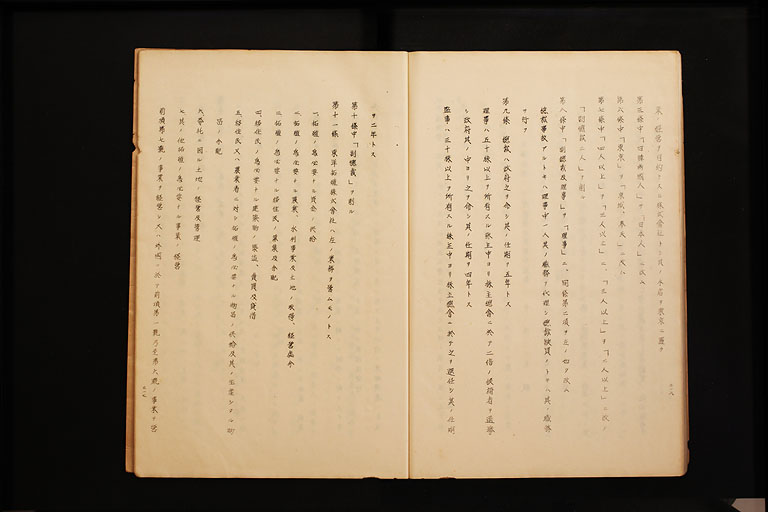 業ノ経営ヲ目的トスル株式会社トシ其ノ本店ヲ東京ニ置ク
第三條中「日韓両國人」ヲ「日本人」ニ改ム
第六條中「漢城」ヲ「京城、奉天」ニ改ム
第七條中「四人以上」ヲ「三人以上」ニ、「三人以上」ヲ「二人以上」ニ改ノ
「副總裁二人」ヲ削ル
第八條中「副總裁及理事」ヲ「理事」ニ、同條第二項ヲ左ノ如ク改ム
總裁事故アルトキハ理事中一人其ノ職務ヲ代理シ總裁缺員ノトキハ其ノ職務
ヲ行フ
第九條 總裁ハ政府之ヲ命シ其ノ任期ヲ五年トス
理事ハ五十株以上ヲ所有スル株主中ヨリ株主總會ニ於テ二倍ノ候補者ヲ選擧
シ政府其ノ中ヨリ之ヲ命シ其ノ任期ヲ四年トス
監事ハ三十株以上ヲ所有スル株主中ヨリ株主總會ニ於テ之ヲ選任シ其ノ任期
ヲ二年トス
第十條中「副總裁」ヲ削ル
第十一條 東洋拓殖株式會社ハ左ノ業務ヲ營ムモノトス
一、拓殖ノ為必要ナル資金ノ供給
二、拓殖ノ為必要ナル農業、水利事業及土地ノ取得、經營處分
三、拓殖ノ為必要ナル移住民ノ募集及分配
四、移住民ノ為必要ナル建築物ノ築造、賣買及貸借
五、移住民又ハ農業者ニ對シ拓殖ノ為必要ナル物品ノ供給及其ノ生産シタル物
品ノ分配
六、委託ニ因ル土地ノ經營及管理
七、其ノ他拓殖ノ為必要ナル事業ノ經營
前項第七號ノ事業ヲ經營シ又ハ外國ニ於テ前項第一號乃至第六號ノ事業ヲ營